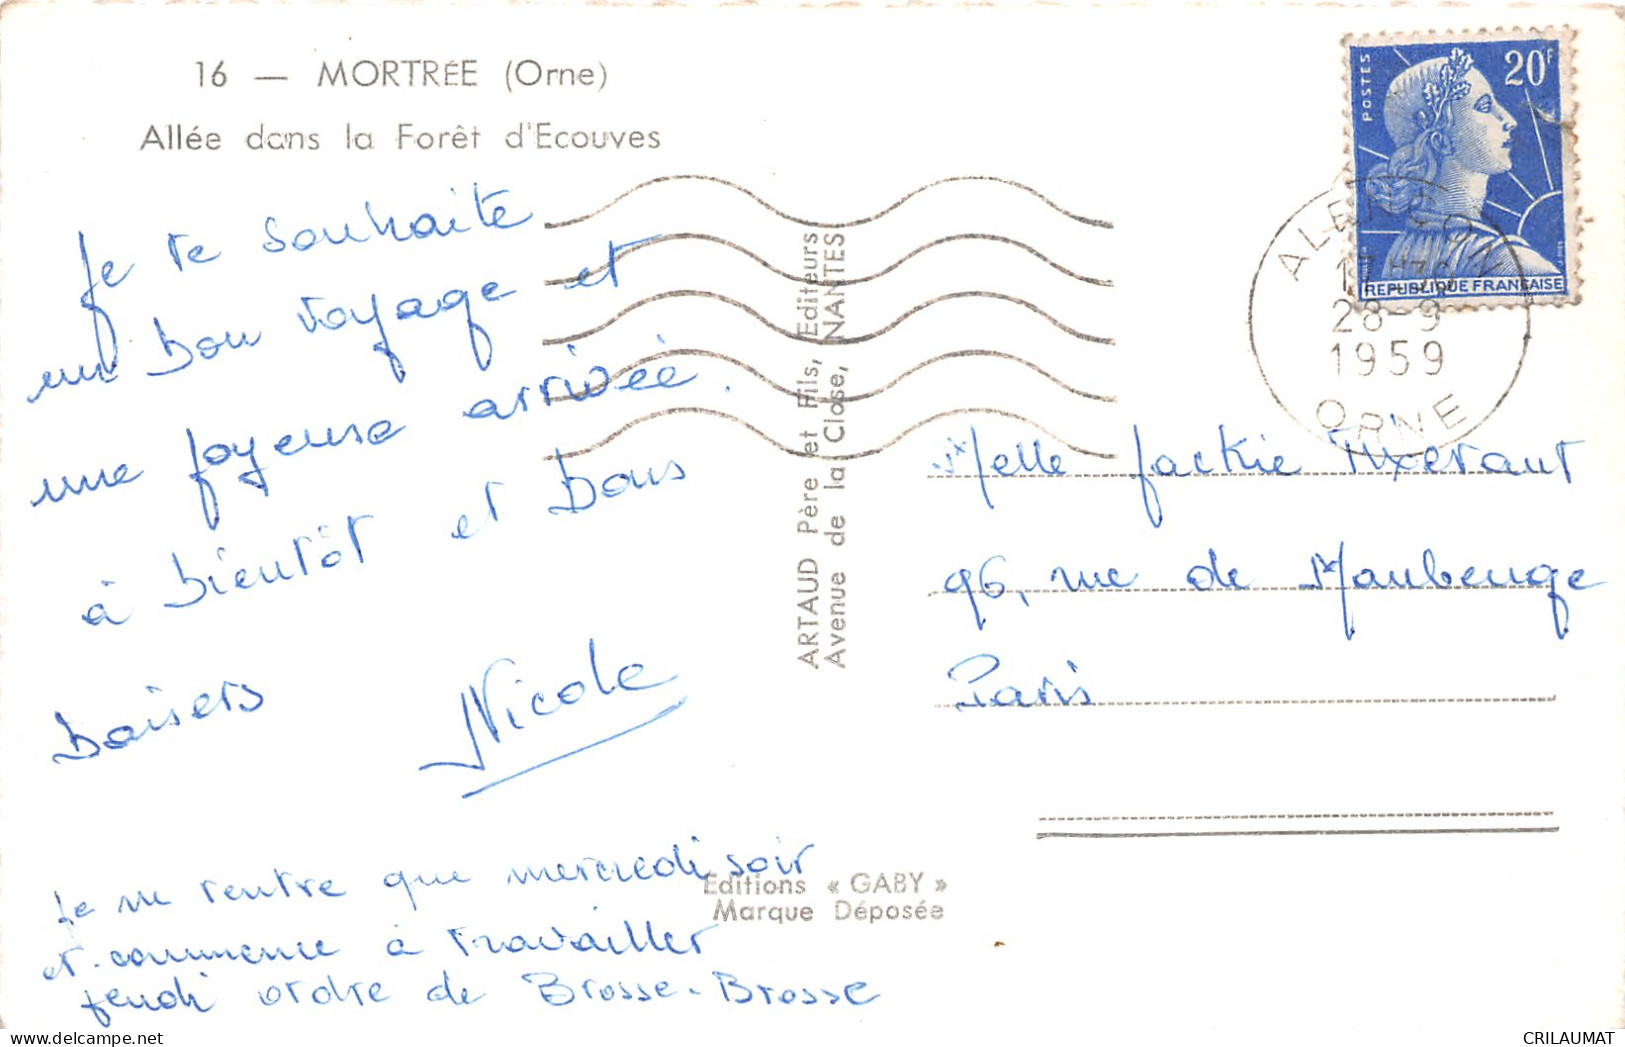 16 — MORTRÉE (Orne)
Allée dans la Forêt d'Ecouves
Je te souhaite
un bon voyage et
une joyeuse arrivée.
à bientôt et bons
baisers
Nicole
Je ne rentre que mercredi soir
et commence à travailler
jeudi ordre de Brosse-Brosse
ARTAUD Père et Fils, Editeurs
Avenue de la Close, NANTES
Editions « GABY »
Marque Déposée
POSTES
20F
REPUBLIQUE FRANÇAISE
ALENÇON
28-9
1959
ORNE
Melle Jackie Tixerant
96, rue de Maubeuge
Paris
CRILAUMAT